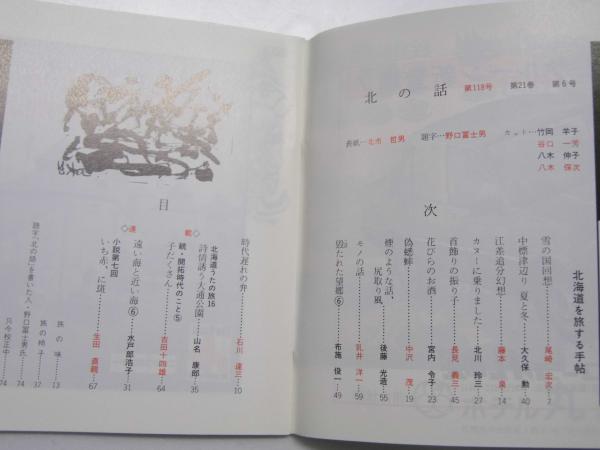 北の話 第118号 第21巻 第6号
表紙…北市 哲男 題字…野口冨士男 カット…竹岡 羊子
谷口 一芳
八木 伸子
八木 保次
目次
北海道を旅する手帖
雪の国回想…尾崎 宏次…2
中標津辺り 夏と冬…大久保 勲…40
江差追分幻想…藤本 泉…4
カヌーに乗りました…北川 玲三…27
首飾りの振り子…長見 義三…45
花びらのお酒…宮内 令子…23
偽蟋蟀…中沢 茂…19
煙のような話、尻取り風…後藤 光造…55
モノの話…乳井 洋一…59
毀たれた望郷⑥…布施 俊一…49
時代遅れの弁…石川 達三…10
◇連載◇
北海道うたの旅16
詩情誘う大通公園…山名 康郎…35
続・開拓時代のこと⑤
子だくさん…吉田十四雄…64
遠い海と近い海⑥…水戸部浩子…31
小説第七回
いち赤、に斑…生田 直親…67
旅の味…13
旅の椅子…37
題字「北の話」を書いた人・野口冨士男氏…74
只今校正中…74